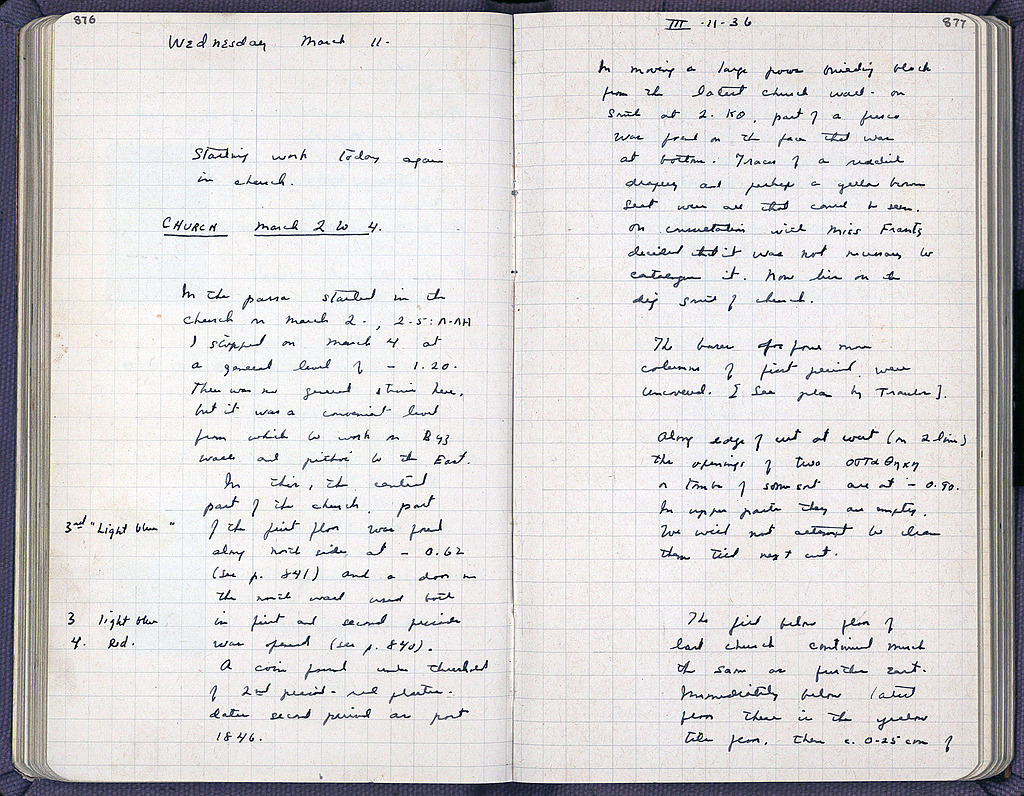 876
Wednesday March 11.
Starting work today again
in church.
CHURCH March 2 to 4.
In the started in the
church on March 2., 2-5: Λ-ΛΗ
I stopped on March 4 at
a general level of - 1.20.
There was no general stratum here,
but it was a convenient level
from which to work on B 43
walls and pithoi to the East.
In this, the central
part of the church, part
3rd "Light blue" of the first floor was found
along north side, at - 0.62
(see p. 841) and a door in
the north wall used both
3 light blue in first and second periods
4. Red. was opened (see p. 840).
A coin found under threshold
of 2nd period - red plaster -
dates second period as post
1846.
III -11-36
877
In moving a large poros building block
from the latest church wall on
South at 2. KO, part of a fresco
was found on the face that was
at bottom. Traces of a reddish
drapery and perhaps a yellow brown
seat were all that could be seen.
On consultation with Miss Frantz
decided that it was not necessary to
catalogue it. Now lies on the
dig south of church.
The bases of four more
columns of first period were
uncovered. [See plan by Travlos].
Along edge of cut at west (on 2 line)
the openings of two ὀστεοθῆκαι
or tombs of some sort are at - 0.90.
In upper parts they are empty.
We will not attempt to clean
them till next cut.
The fill below floor of
last church continued much
the same as further east.
Immediately below latest
floor there is the yellow
tile floor, then c. 0-25 cm of